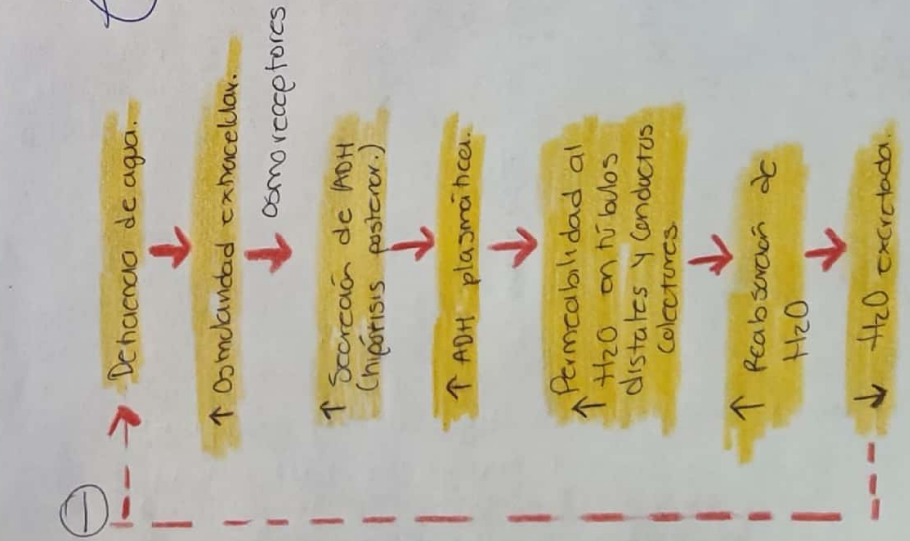 Deficiencia de agua.
↑ Osmolaridad extracelular.
osmoreceptores
↑ Secreción de ADH
(hipófisis posterior.)
↑ ADH plasmática.
↑ Permeabilidad al
H2O en túbulos
distales y conductos
colectores
↑ Reabsorción de
H2O
↓ H2O excretada.